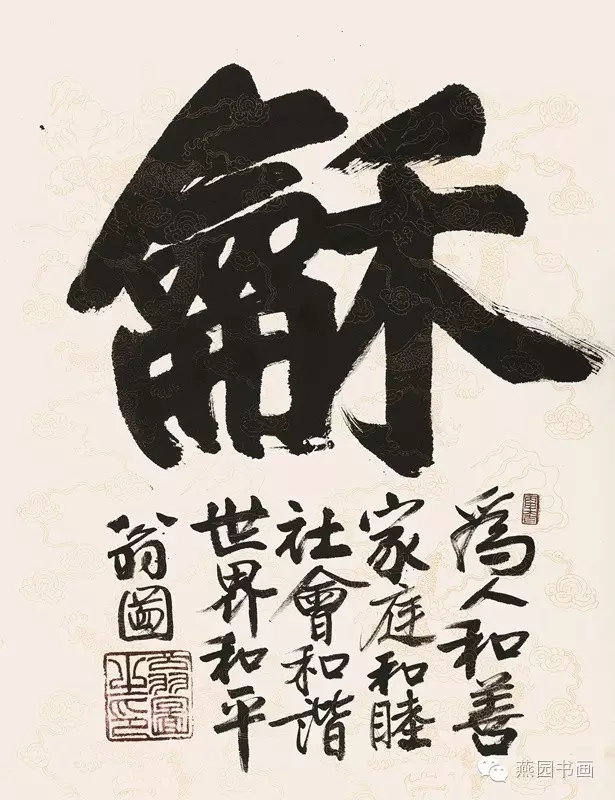 龢
爲人和善
家庭和睦
社會和諧
世界和平
翁圖
翁圖之印
燕园书画